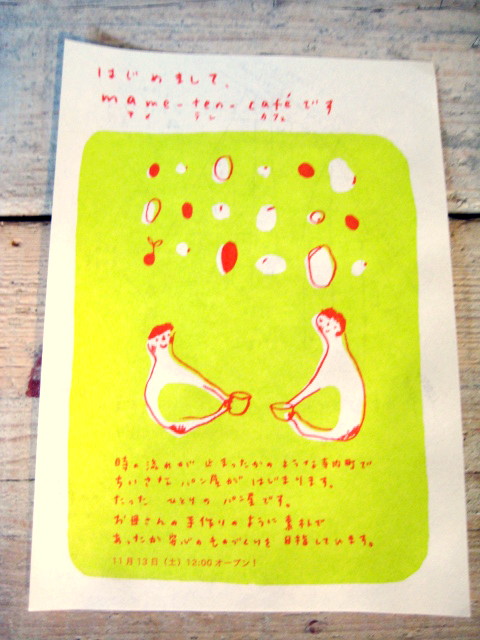 はじめまして、
mame-ten-caféです
マメ テン カフェ
時の流れが止まったかのような寺内町で
ちいさな パン屋が はじまります。
たった ひとりの パン屋です。
お母さんの手作りのように素朴で
あったか安心のものづくりを目指しています。
11月13日（土）12:00オープン！